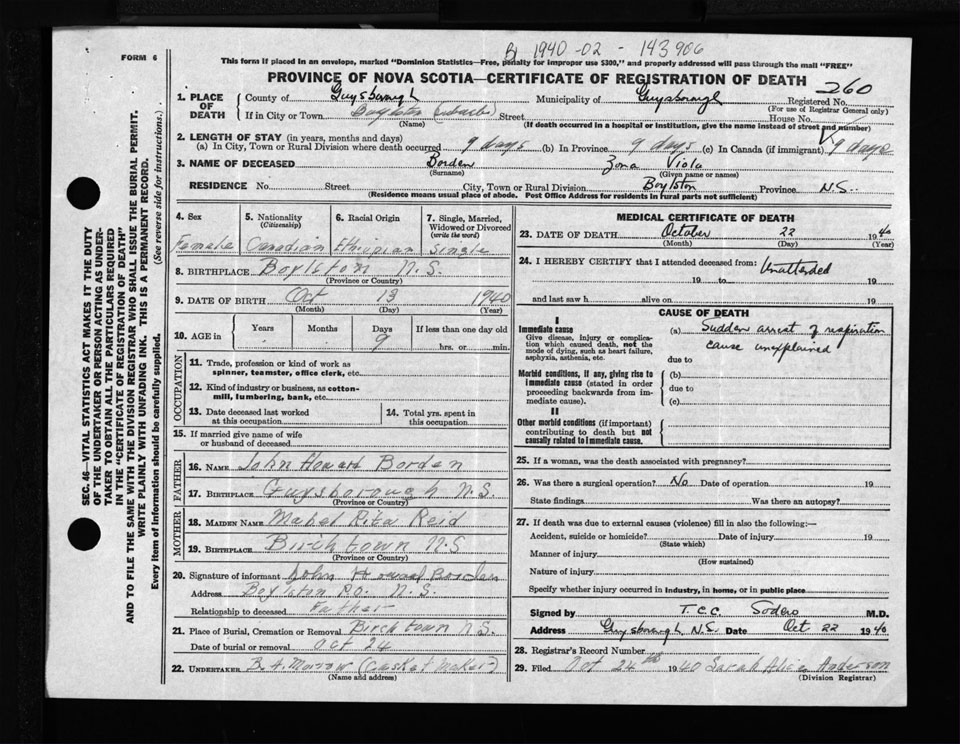 1940 -02 - 143906
FORM 6
This form if placed in an envelope, marked "Dominion Statistics—Free, penalty for improper use $300," and properly addressed will pass through the mail "FREE"
PROVINCE OF NOVA SCOTIA—CERTIFICATE OF REGISTRATION OF DEATH
260
1. PLACE OF DEATH
County of Guysborough Municipality of Guysborough Registered No.
(For use of Registrar General only)
If in City or Town Boylston Street House No.
(Name) (If death occurred in a hospital or institution, give the name instead of street and number)
2. LENGTH OF STAY (in years, months and days)
(a) In City, Town or Rural Division where death occurred 9 days (b) In Province 9 days (c) In Canada (if immigrant) 9 days
3. NAME OF DECEASED Borden Zona Viola
(Surname) (Given name or names)
RESIDENCE No. Street City, Town or Rural Division Boylston Province N.S.
(Residence means usual place of abode. Post Office Address for residents in rural parts not sufficient)
4. Sex
Female
5. Nationality
(Citizenship)
Canadian
6. Racial Origin
Ethiopian
7. Single, Married, Widowed or Divorced
(write the word)
Single
8. BIRTHPLACE Boylston N.S.
(Province or Country)
9. DATE OF BIRTH Oct 13 1940
(Month) (Day) (Year)
10. AGE in Years Months Days If less than one day old
9 hrs. or min.
OCCUPATION
11. Trade, profession or kind of work as
spinner, teamster, office clerk, etc.
12. Kind of industry or business, as cotton-
mill, lumbering, bank, etc.
13. Date deceased last worked
at this occupation
14. Total yrs. spent in
this occupation
15. If married give name of wife
or husband of deceased
FATHER
16. NAME John Howard Borden
17. BIRTHPLACE Guysborough N.S.
(Province or Country)
MOTHER
18. MAIDEN NAME Mabel Rita Reid
19. BIRTHPLACE Birchtown N.S
(Province or Country)
20. Signature of informant John Howard Borden
Address Boylston P.O. N.S.
Relationship to deceased Father
21. Place of Burial, Cremation or Removal Birchtown N.S.
Date of burial or removal Oct 24
22. UNDERTAKER B. A. Morrow (Casket Maker)
(Name and address)
MEDICAL CERTIFICATE OF DEATH
23. DATE OF DEATH October 22 1940
(Month) (Day) (Year)
24. I HEREBY CERTIFY that I attended deceased from: Unattended
19 to 19
and last saw h alive on 19
CAUSE OF DEATH
I
Immediate cause
Give disease, injury or complica-
tion which caused death, not the
mode of dying, such as heart failure,
asphyxia, asthenia, etc.
(a) Sudden arrest of respiration
cause unexplained
due to
Morbid conditions, if any, giving rise to
immediate cause (stated in order
proceeding backwards from im-
mediate cause).
(b)
due to
(c)
II
Other morbid conditions (if important)
contributing to death but not
causally related to immediate cause.
25. If a woman, was the death associated with pregnancy?
26. Was there a surgical operation? No Date of operation 19
State findings Was there an autopsy?
27. If death was due to external causes (violence) fill in also the following:—
Accident, suicide or homicide? Date of injury 19
(State which)
Manner of injury
(How sustained)
Nature of injury
Specify whether injury occurred in industry, in home, or in public place
Signed by T.C.C. Sodero M.D.
Address Guysborough, N.S. Date Oct 22 1940
28. Registrar's Record Number
29. Filed Oct 24th 1940 Sarah Alice Anderson
(Division Registrar)
SEC. 46—VITAL STATISTICS ACT MAKES IT THE DUTY
OF THE UNDERTAKER OR PERSON ACTING AS UNDER-
TAKER TO OBTAIN ALL THE PARTICULARS REQUIRED
IN THE "CERTIFICATE OF REGISTRATION OF DEATH"
AND TO FILE THE SAME WITH THE DIVISION REGISTRAR WHO SHALL ISSUE THE BURIAL PERMIT.
WRITE PLAINLY WITH UNFADING INK. THIS IS A PERMANENT RECORD.
Every item of information should be carefully supplied. (See reverse side for instructions.)